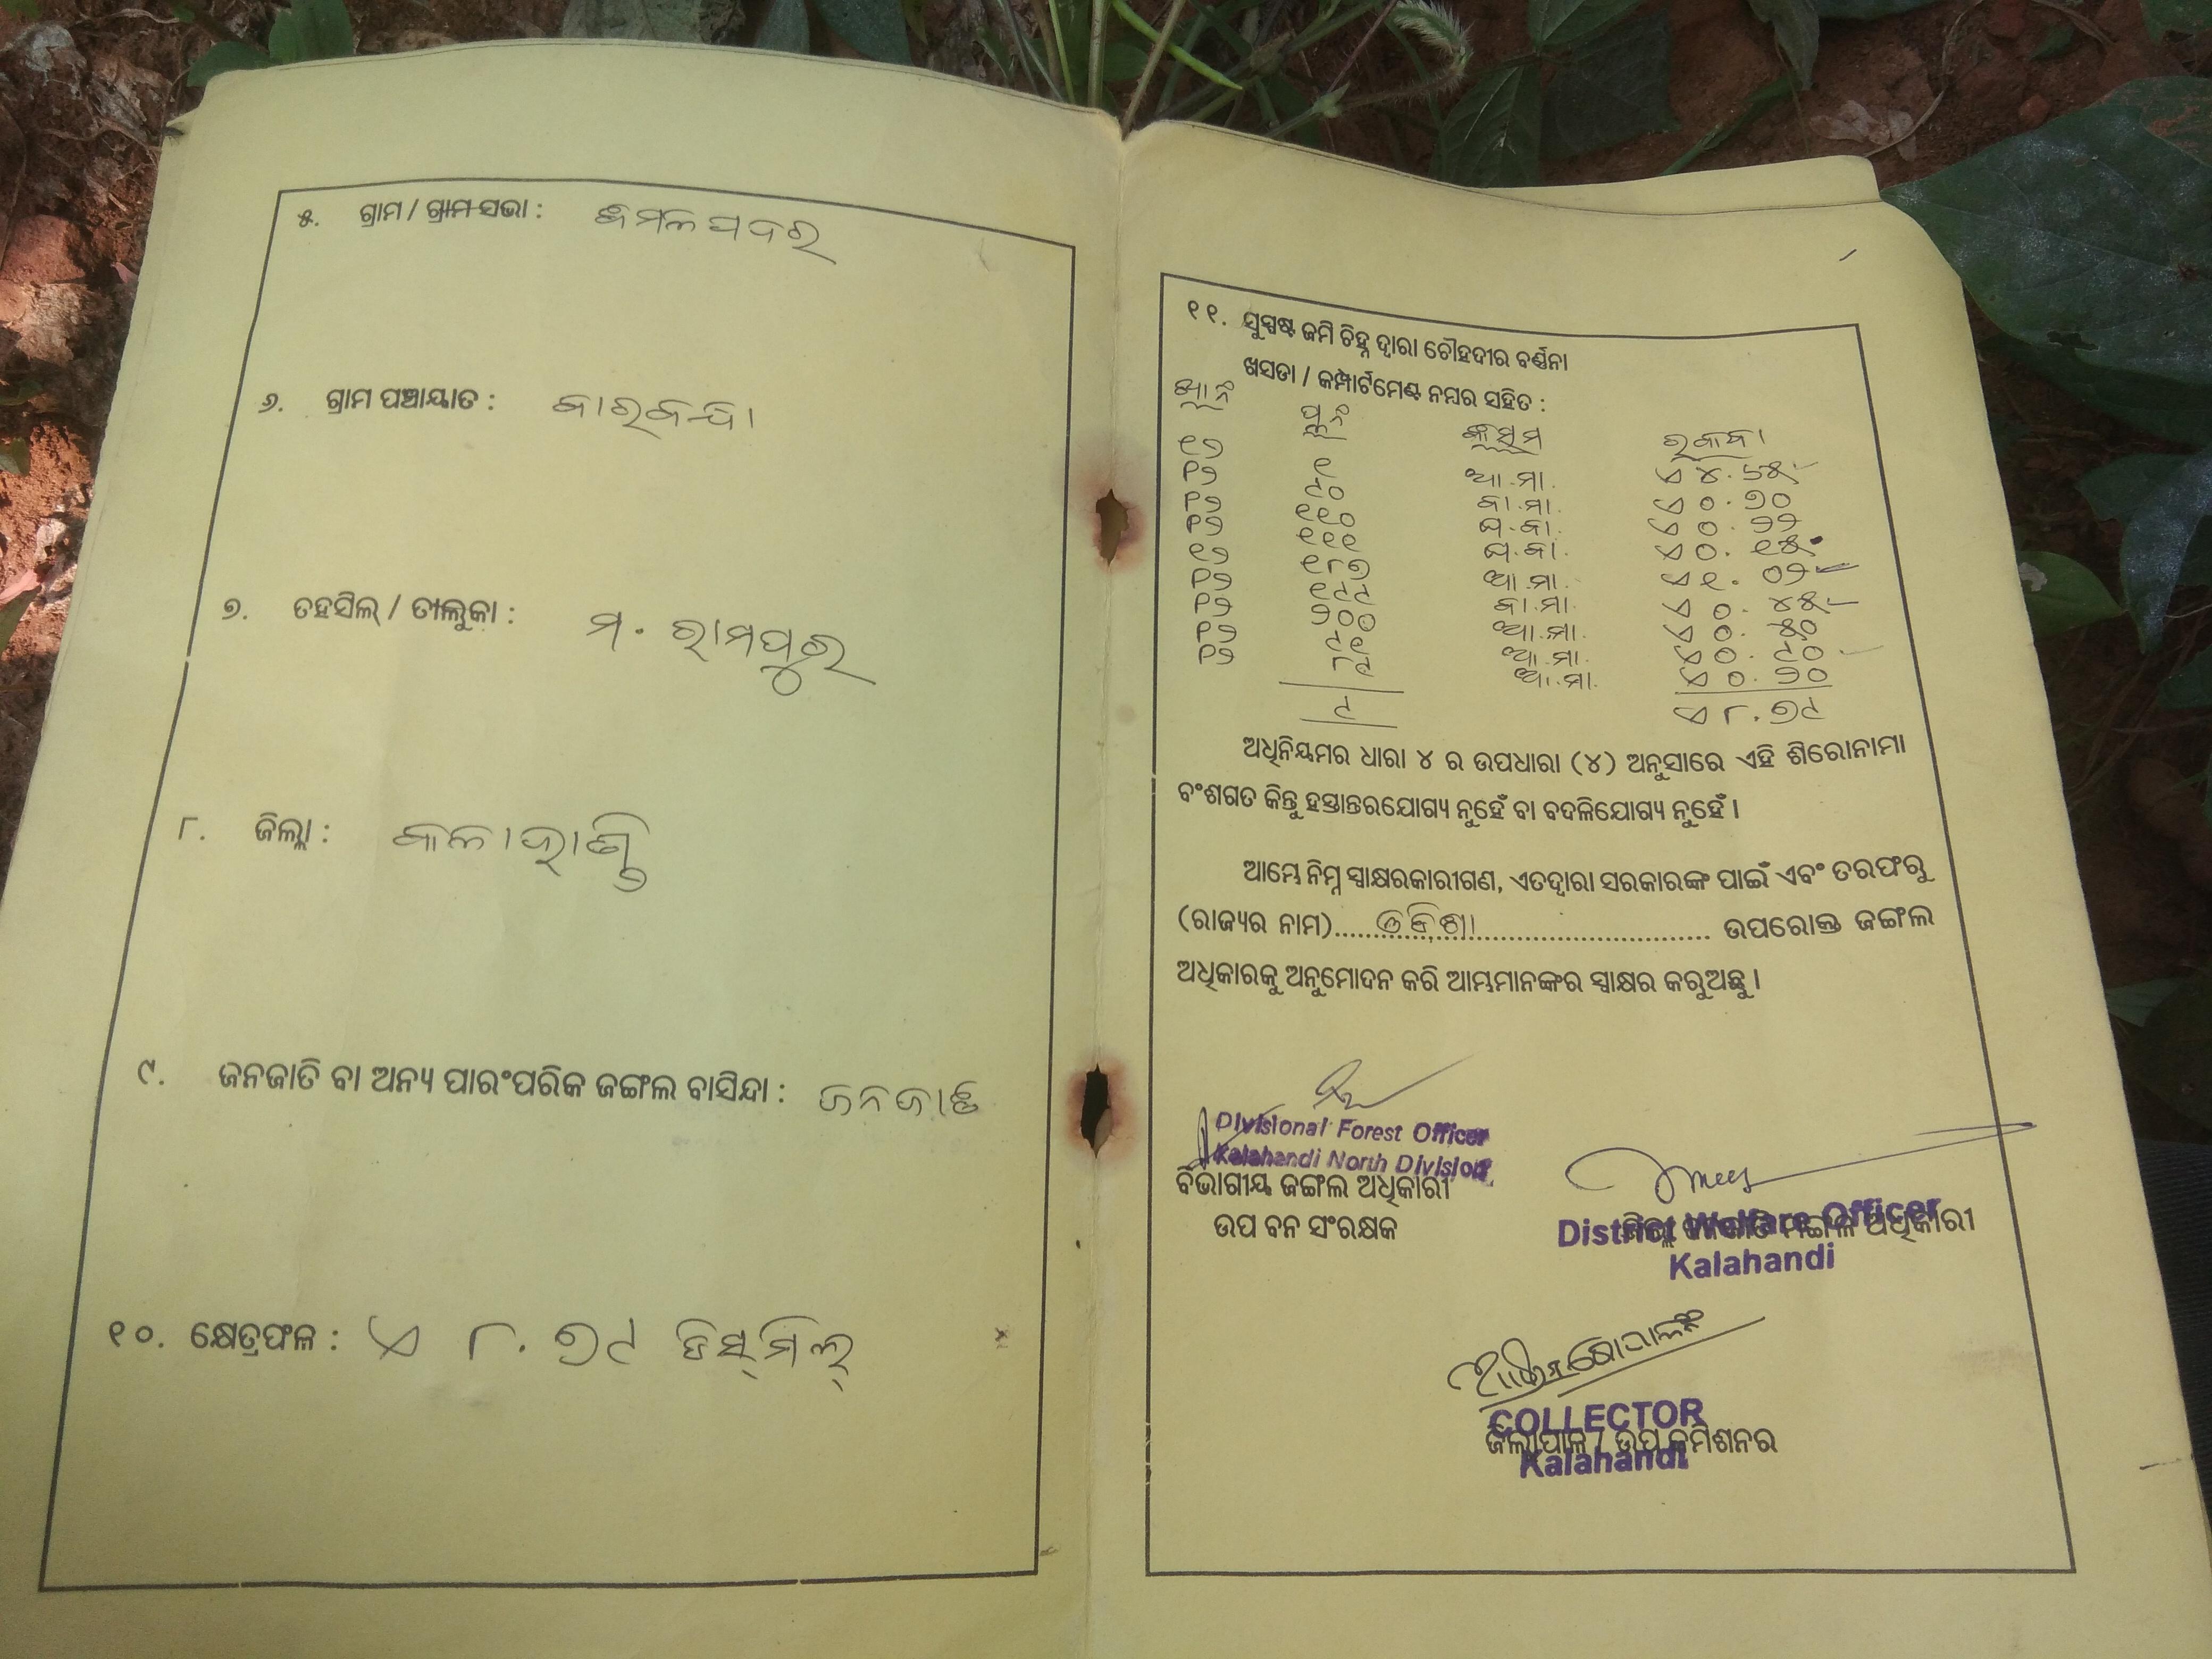 ୫. ଗ୍ରାମ / ଗ୍ରାମ ସଭା : ଜମଳପଦର
୬. ଗ୍ରାମ ପଞ୍ଚାୟାତ : କାରକନ୍ଦା
୭. ତହସିଲ୍ / ତାଲୁକା : ମ. ରାମପୁର
୮. ଜିଲ୍ଲା : କଳାହାଣ୍ଡି
୯. ଜନଜାତି ବା ଅନ୍ୟ ପାରଂପରିକ ଜଙ୍ଗଲ ବାସିନ୍ଦା : ଜନଜାତି
୧୦. କ୍ଷେତ୍ରଫଳ : ଏ ୮.୭୯ ଡିସ୍ମିଲ୍
୧୧. ସୁସ୍ପଷ୍ଟ ଜମି ଚିହ୍ନ ଦ୍ୱାରା ଚୌହଦୀର ବର୍ଣ୍ଣନା
ଖସଡା / କମ୍ପାର୍ଟମେଣ୍ଟ ନମ୍ବର ସହିତ :
ଖା.ନଂ ପ୍ଲ.ନଂ କିସମ ରକବା
୧୭ ୧ ଆ.ମା. ଏ ୪.୬୫
୧୭ ୯୦ ବା.ମା. ଏ ୦.୭୦
୧୭ ୧୧୦ ଘ.ବା. ଏ ୦.୨୨
୧୭ ୧୧୧ ଘ.ବା. ଏ ୦.୧୫
୧୭ ୧୮୭ ଆ.ମା. ଏ ୧.୦୨
୧୭ ୧୯୯ ବା.ମା. ଏ ୦.୪୫
୧୭ ୨୦୦ ଆ.ମା. ଏ ୦.୫୦
୧୭ ୯୧ ଆ.ମା. ଏ ୦.୯୦
୧୭ ୮୯ ଆ.ମା. ଏ ୦.୨୦
୯ ଏ ୮.୭୯
ଅଧିନିୟମର ଧାରା ୪ ର ଉପଧାରା (୪) ଅନୁସାରେ ଏହି ଶିରୋନାମା
ବଂଶଗତ କିନ୍ତୁ ହସ୍ତାନ୍ତରଯୋଗ୍ୟ ନୁହେଁ ବା ବଦଳିଯୋଗ୍ୟ ନୁହେଁ ।
ଆମ୍ଭେ ନିମ୍ନ ସ୍ୱାକ୍ଷରକାରୀଗଣ, ଏତଦ୍ୱାରା ସରକାରଙ୍କ ପାଇଁ ଏବଂ ତରଫରୁ
(ରାଜ୍ୟର ନାମ)..... ଓଡ଼ିଶା ..... ଉପରୋକ୍ତ ଜଙ୍ଗଲ
ଅଧିକାରକୁ ଅନୁମୋଦନ କରି ଆମ୍ଭମାନଙ୍କର ସ୍ୱାକ୍ଷର କରୁଅଛୁ ।
Divisional Forest Officer
Kalahandi North Division
ବିଭାଗୀୟ ଜଙ୍ଗଲ ଅଧିକାରୀ
ଉପ ବନ ସଂରକ୍ଷକ
District Welfare Officer
ଜିଲ୍ଲା ଜନଜାତି ମଙ୍ଗଳ ଅଧିକାରୀ
Kalahandi
COLLECTOR
ଜିଲ୍ଲାପାଳ / ଉପ କମିଶନର
Kalahandi